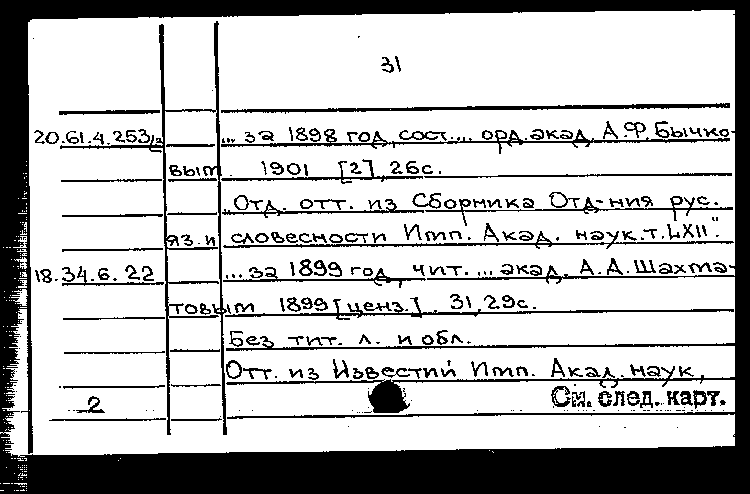 31
20.61.4.253/2 ... за 1898 год, сост. ... орд. акад. А.Ф. Бычко-
вым. 1901 [2], 26с.
"Отд. отт. из Сборника Отд-ния рус.
яз. и словесности Имп. Акад. наук. т. LXII".
18.34.6.22 ... за 1899 год, чит. ... акад. А.А. Шахма-
товым 1899 [ценз.]. 31, 29с.
Без тит. л. и обл.
Отт. из Известий Имп. Акад. наук,
2 См. след. карт.